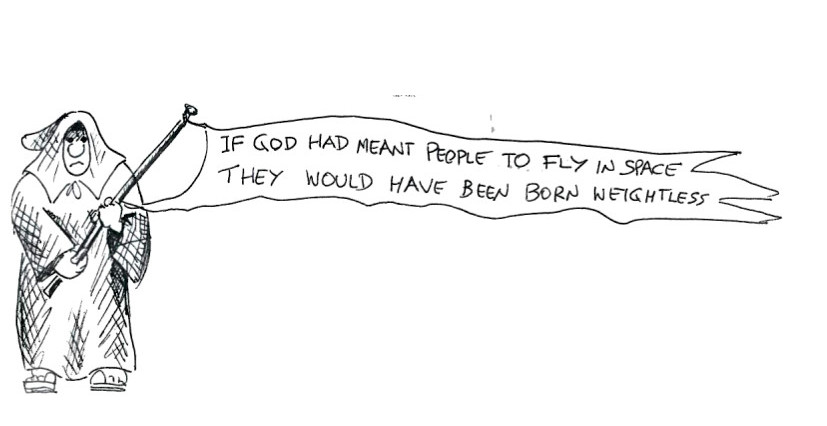 IF GOD HAD MEANT PEOPLE TO FLY IN SPACE
THEY WOULD HAVE BEEN BORN WEIGHTLESS